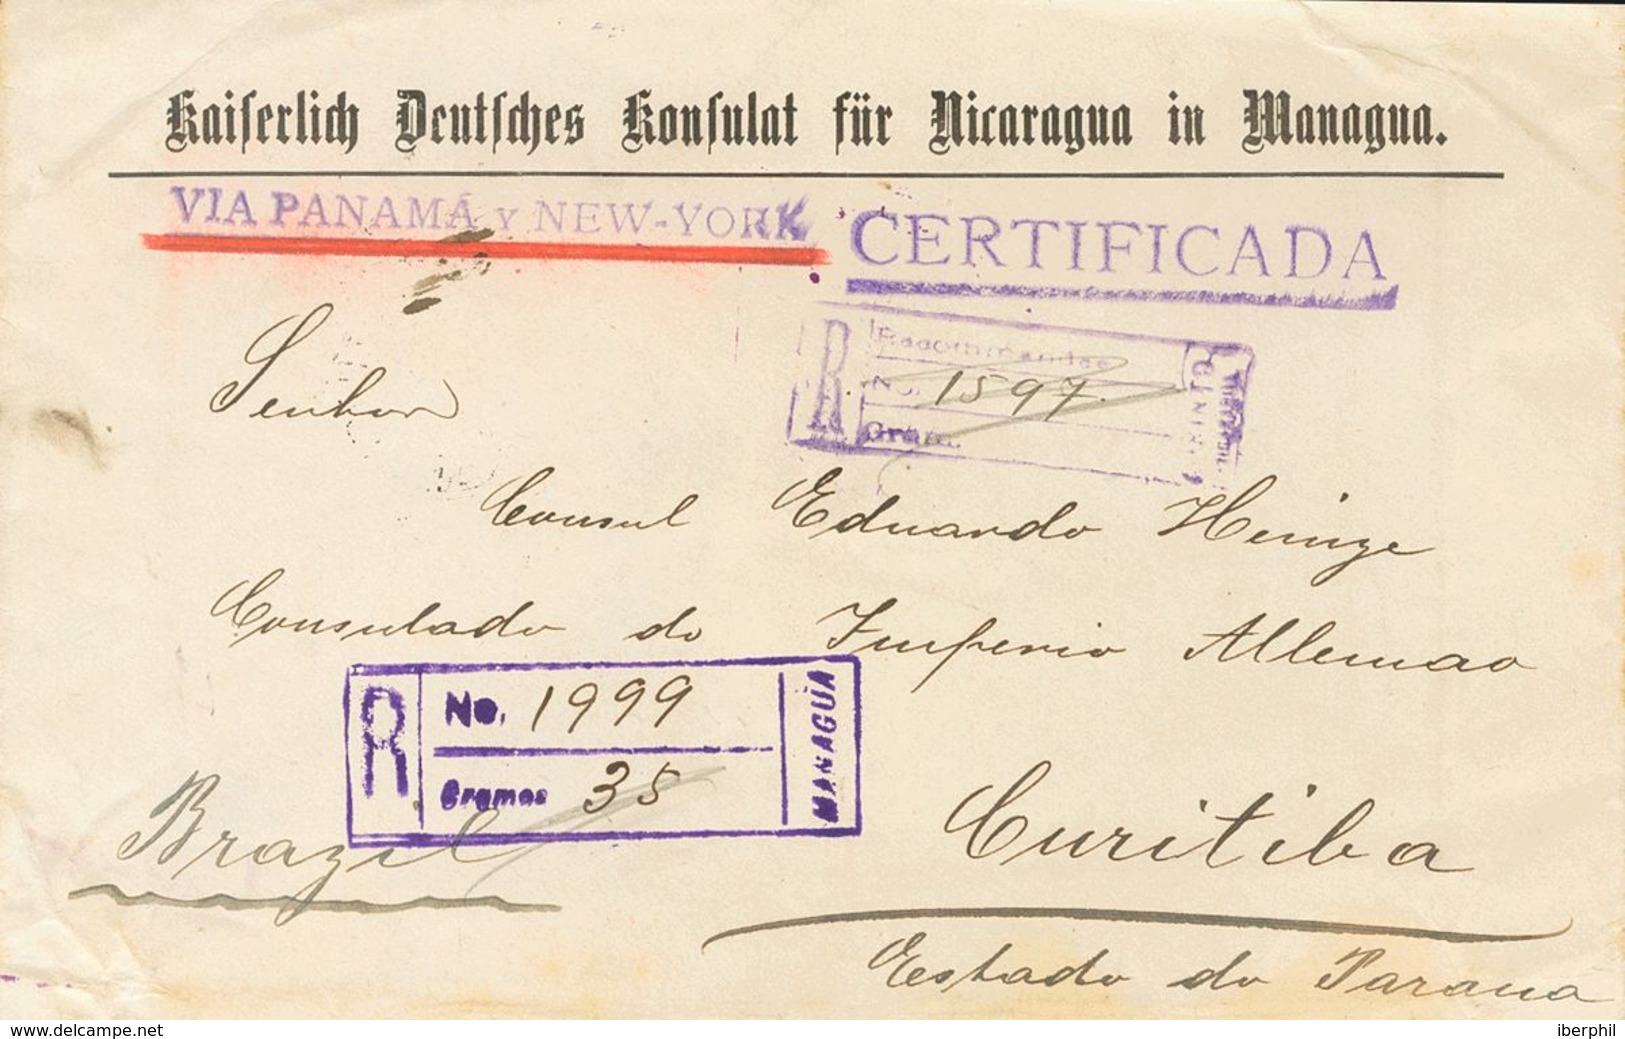 Kaiserlich Deutsches Konsulat für Nicaragua in Managua.
VIA PANAMÁ Y NEW-YORK
CERTIFICADA
R Recommandée
No. 1597
Gram.
CORINTO
Senhor
Consul Eduardo Heinze
Consulado do Imperio Allemao
R No. 1999
Gramos 35
MANAGUA
Brazil
Curitiba
Estado do Parana
www.delcampe.net
iberphil